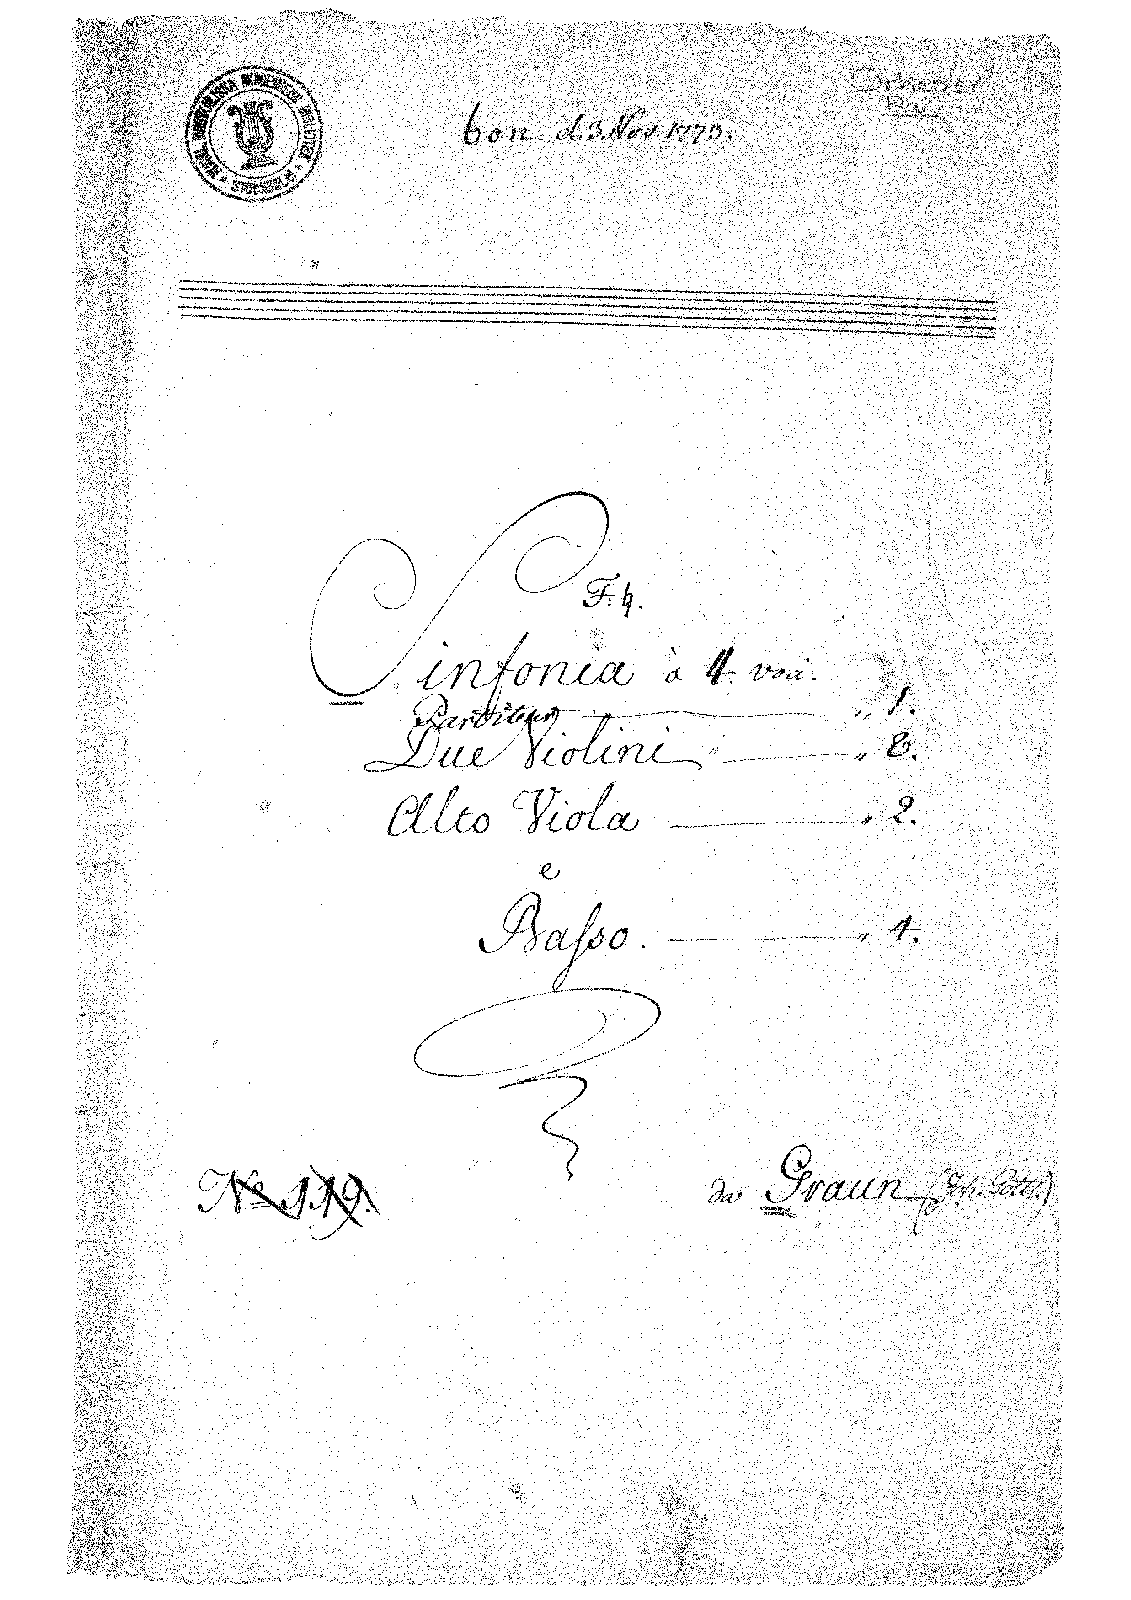 bon d. 3. Nov 1773.
F. ♮.
Sinfonia à 4. voci.
Partitura „ 1.
Due Violini „ 6.
Alto Viola „ 2.
e
Basso. „ 4.
No. 119.
da Graun (Joh. Gottl.)